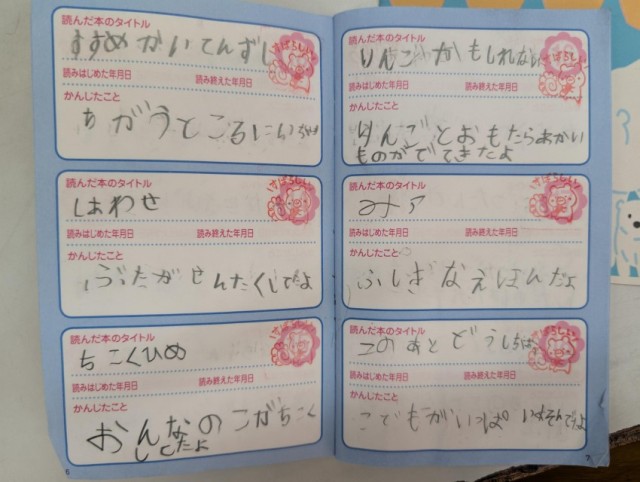 読んだ本のタイトル
すすめかいてんずし
読みはじめた年月日 読み終えた年月日
かんじたこと
ちがうところにいちゃき
読んだ本のタイトル
しあわせ
読みはじめた年月日 読み終えた年月日
かんじたこと
ぶたがせんたくしてたよ
読んだ本のタイトル
ちこくひめ
読みはじめた年月日 読み終えた年月日
かんじたこと
おんなのこがちこく
してたよ
6
読んだ本のタイトル
りんごかもしれない
読みはじめた年月日 読み終えた年月日
かんじたこと
りんごとおもたらあかい
ものがでてきたよ
読んだ本のタイトル
みァ
読みはじめた年月日 読み終えた年月日
かんじたこと
ふしぎなえほんだよ
読んだ本のタイトル
このあとどうしちゃ
読みはじめた年月日 読み終えた年月日
かんじたこと
こどもがいっぱ
7